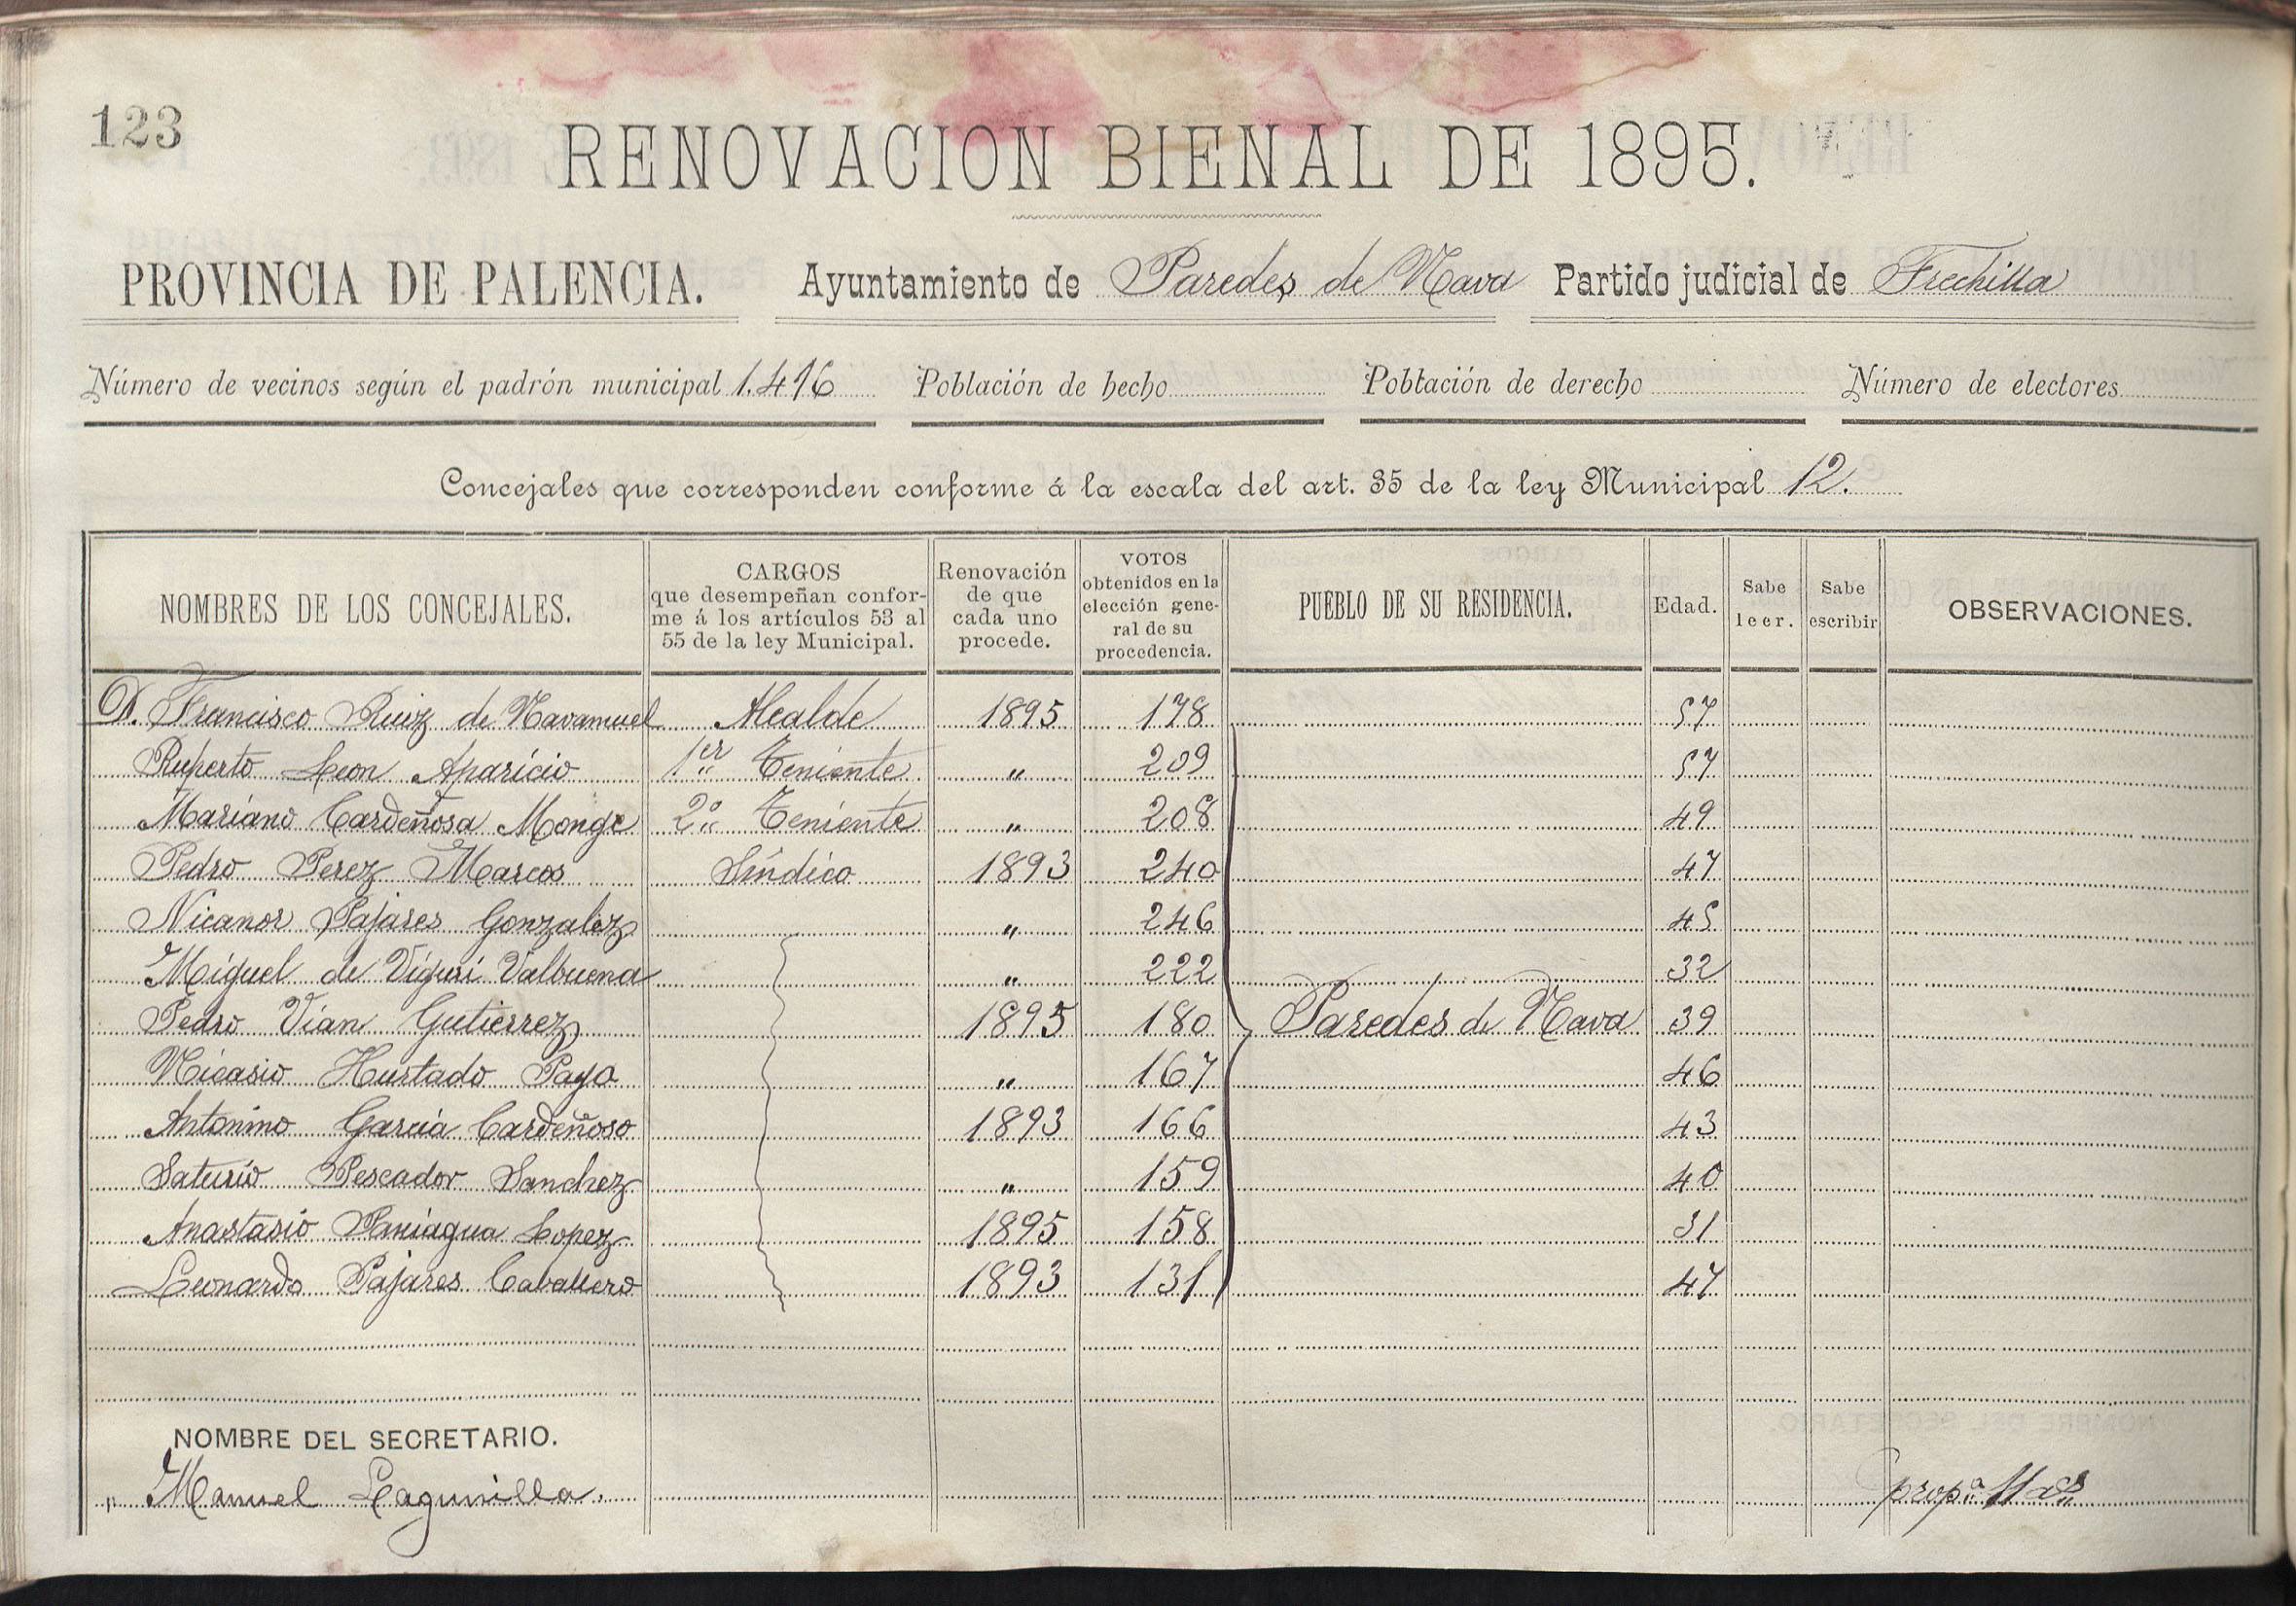 123
RENOVACION BIENAL DE 1895.
PROVINCIA DE PALENCIA. Ayuntamiento de Paredes de Nava Partido judicial de Frechilla
Número de vecinos según el padrón municipal 1.416 Población de hecho Población de derecho Número de electores
Concejales que corresponden conforme á la escala del art. 35 de la ley Municipal 12.
NOMBRES DE LOS CONCEJALES. CARGOS que desempeñan conforme á los artículos 53 al 55 de la ley Municipal. Renovación de que cada uno procede. VOTOS obtenidos en la elección general de su procedencia. PUEBLO DE SU RESIDENCIA. Edad. Sabe leer. Sabe escribir OBSERVACIONES.
D. Francisco Ruiz de Navamuel Alcalde 1895 178 57
Ruperto Leon Aparicio 1er Teniente " 209 57
Mariano Cardeñosa Monge 2º Teniente " 208 49
Pedro Perez Marcos Síndico 1893 240 47
Nicanor Pajares Gonzalez " 246 45
Miguel de Viguri Valbuena " 222 32
Pedro Vian Gutierrez 1895 180 Paredes de Nava 39
Nicasio Hurtado Payo " 167 46
Antonino García Cardeñoso 1893 166 43
Saturio Pescador Sanchez " 159 40
Anastasio Paniagua Lopez 1895 158 31
Leonardo Pajares Caballero 1893 131 47
NOMBRE DEL SECRETARIO.
" Manuel Lagunilla. propª